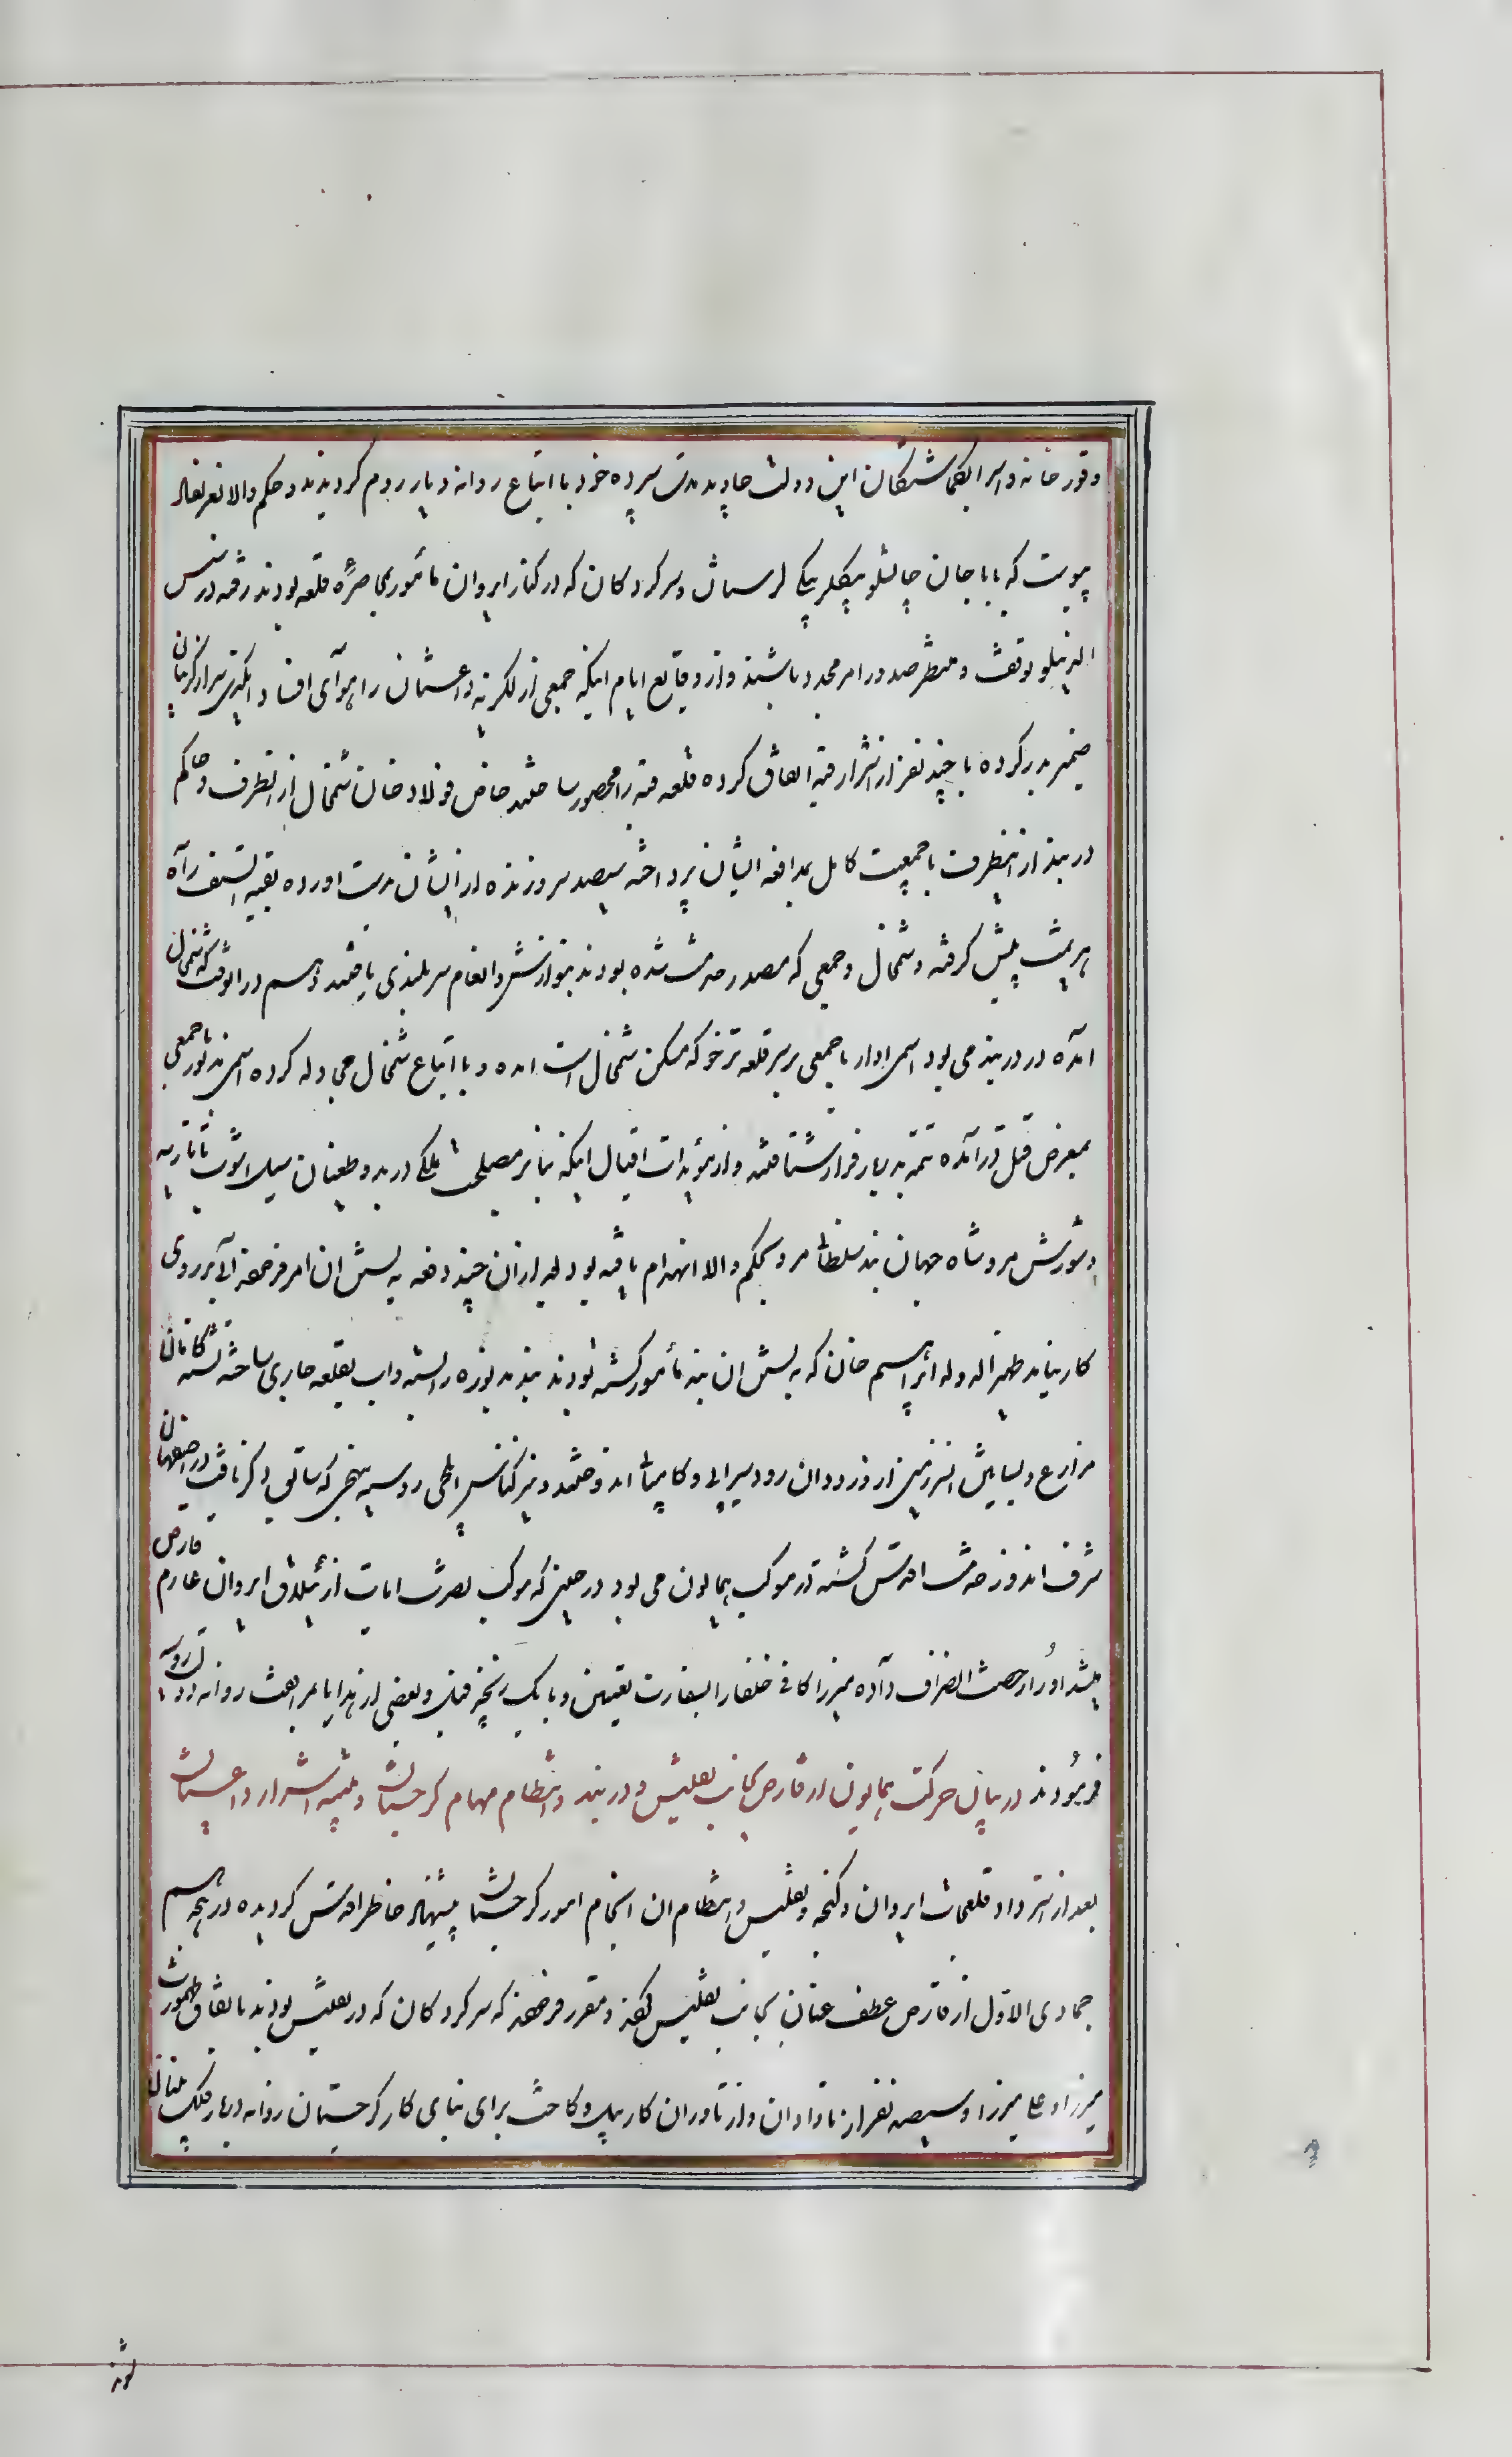 و قورخانه و اسرا بکماشتگان این دولت جاوید مدت سپرده خود با اتباع روانه دیار روم گردیدند و حکم والا بعز نفاذ
پیوست که باباجان چاپشلو بیگلربیگی لرستان و سرکردگان که در کنار ایروان مأمور بمحاصرهٔ قلعه بودند رفته در
النیلو توقف و منتظر صدور امر مجدد باشند و از وقایع ایام اینکه جمعی از لکزیه داغستان را هوای افساد انگیزی سر از گریبان
ضمیر بدر کرده با چند نفر از اشرار قبه اتفاق کرده قلعه قبه را محصور ساختند خاص فولاد خان شمخال از انطرف و حاکم
دربند از اینطرف با جمعیت کامل بمدافعه ایشان پرداخته سیصد سر و زنده از ایشان بدست اورده بقیة السیف راه
هزیمت پیش گرفته و شمخال و جمعی که مصدر خدمت شده بودند بنوازش و انعام سربلندی یافتند و هم در انوقت که شمخال
امده در دربند می بود اسمی ادار با جمعی بر سر قلعه ترخو که مسکن شمخال است امده و با اتباع شمخال مجادله کرده اسمی مذکور با جمعی
بمعرض قتل درآمده تتمه بدیار فرار شتافتند و از مؤیدات اقبال اینکه بنا بر مصلحت ملکی در بدو طغیان سیل اشوب تاتاریه
و شورش مرو شاه جهان بند سلطانی مرو بحکم والا انهدام یافته بود بعد از ان چند دفعه به بستن ان امر فرمودند آبی بر روی
کار نیامد ظهیر الدوله ابراهیم خان که به بستن ان بند مأمور گشته بودند بند مذبوره را بسته و اب بقلعه جاری ساخته تشنه کامان
مزارع و بساتین انسرزمین از ورود ان رود سیرابی و کامیابی اندوختند و نیز کنیاس ایلچی روسیه بنهجی که سابق ذکر یافت در اصفهان
شرف اندوز خدمت اقدس گشته در موکب همایون می بود در حینی که موکب نصرت ایات از ییلاق ایروان عازم قارص
میشد او را رخصت انصراف داده میرزا کافی خلفا را بسفارت تعیین و با یک زنجیر فیل و بعضی از هدایا بمرافقت روانه دولت روسیه
فرمودند در بیان حرکت همایون از قارص بجانب تفلیس و دربند و انتظام مهام کرجستان و تنبیه اشرار داغستان
بعد از استرداد قلعجات ایروان و کنجه و تفلیس و انتظام ان انجام امور کرجستان پیشنهاد خاطر اقدس کردیده در پنجم
جمادی الاول از قارص عطف عنان بجانب تفلیس نموده و مقرر فرمودند که سرکردکان که در تفلیس بودند باتفاق طهمورث
میرزا و علی میرزا و سیصد نفر از تاوادان و از ناوران کارتیل و کاخت برای بنای کار کرجستان روانه دربار فلک
شوند